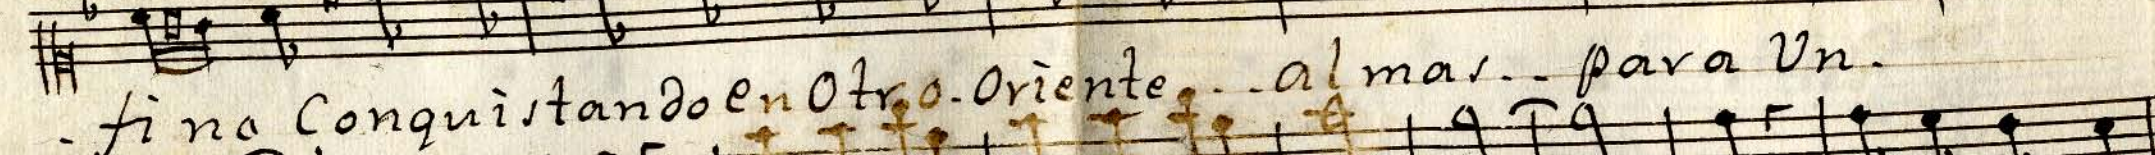 . fino Conquistando en Otro. Oriente...almas.. para Un.